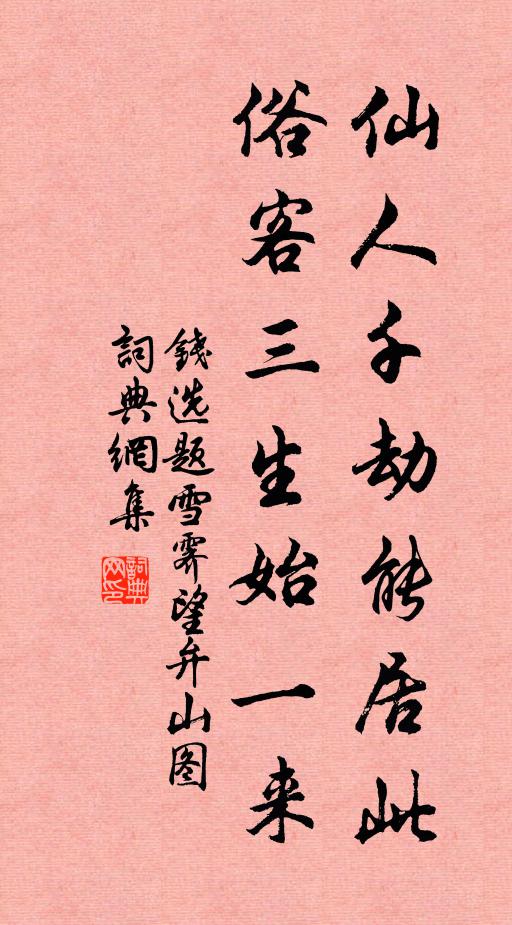 仙人千劫能居此
俗客三生始一来
錢选题雪霽望弁山图
詞典網集
詞典
网印